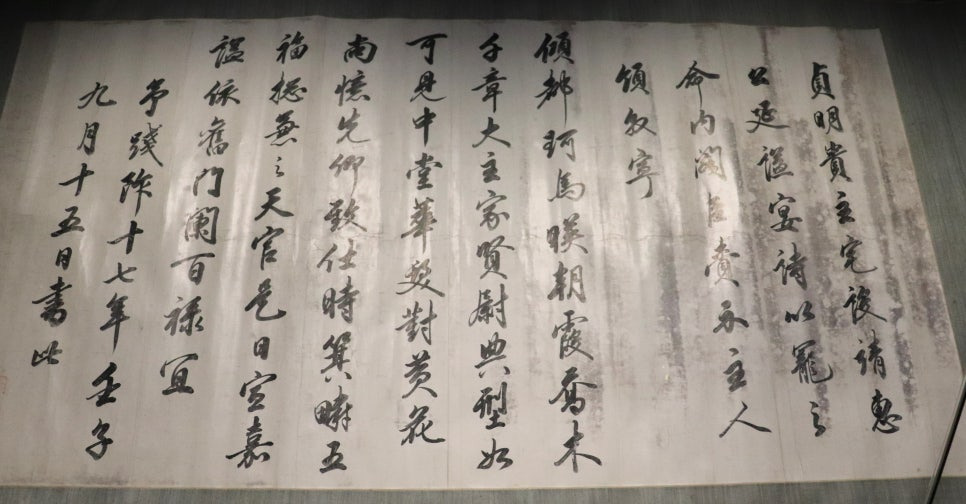 貞明貴主宅設靖惠
公延諡宴詩以寵之
命內閣臣賫示主人
領敦寧
傾都珂馬暎朝霞喬木
千章大主家賢尉典型如
可見中堂華髮對黃花
尚憶先卿致仕時箕疇五
福摠兼之天官是日宣嘉
諡依舊門闌百祿宜
予踐阼十七年壬子
九月十五日書此